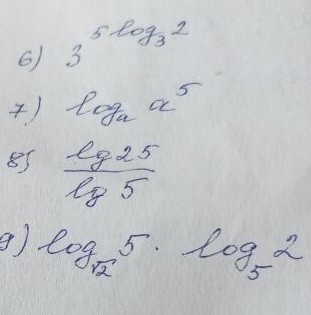 6) 3^{5 log_3 2}
7) log_a a^5
8) \frac{lg 25}{lg 5}
9) log_{√2} 5 · log_5 2